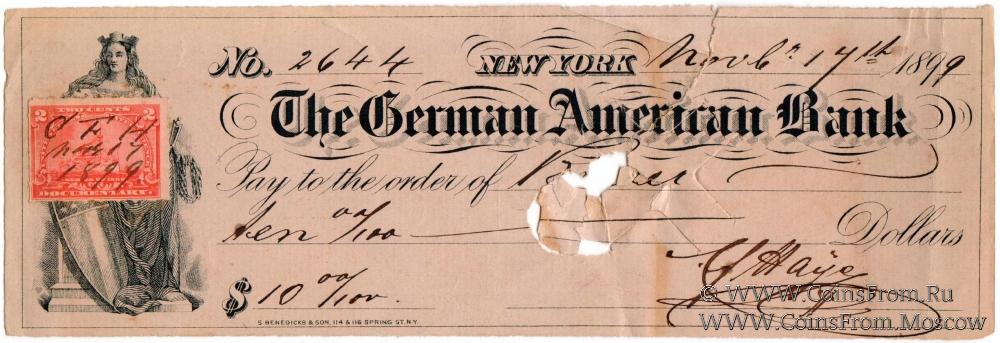 No. 2644 NEW YORK Novbr 17th 1899
The German American Bank
Pay to the order of
ten 00/100 Dollars
$ 10 00/100
S BENEDICKS & SON, 114 & 116 SPRING ST. N.Y.
TWO CENTS
2 2
Nov 17
1899
DOCUMENTARY
© WWW.CoinsFrom.Ru
WWW.CoinsFrom.Moscow